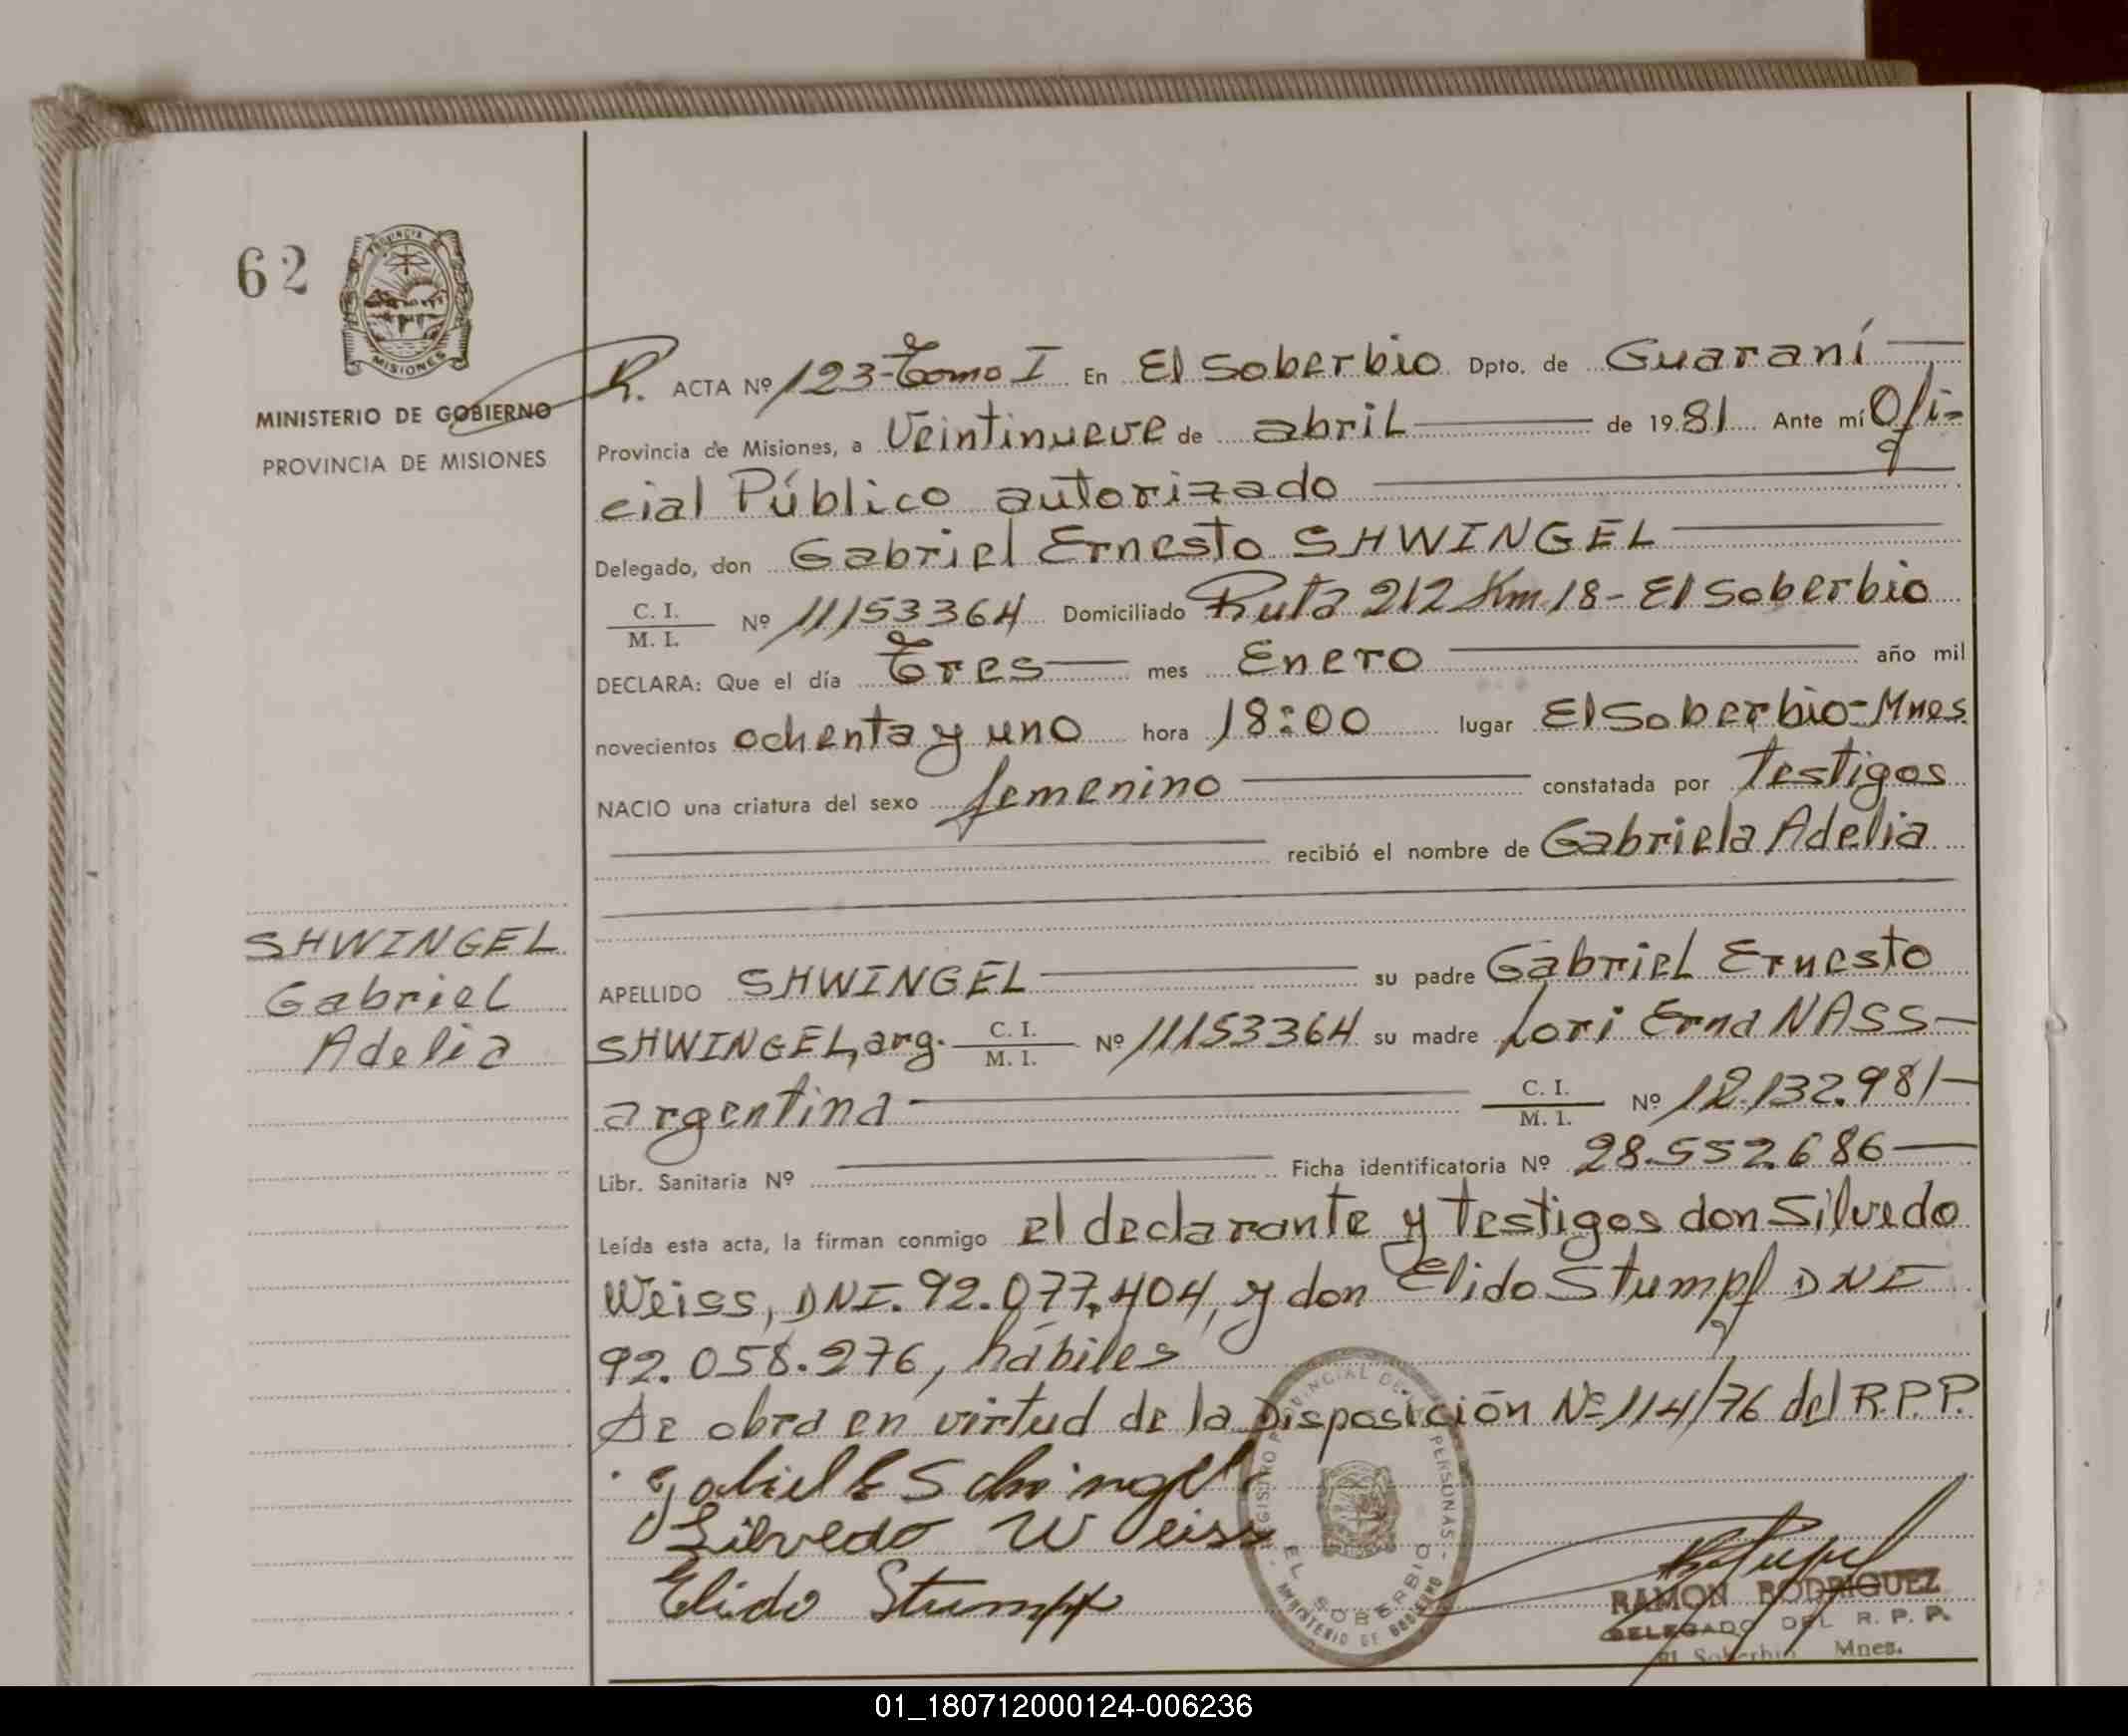 62
PROVINCIA DE
MISIONES
MINISTERIO DE GOBIERNO
PROVINCIA DE MISIONES
SHWINGEL
Gabriel
Adelia
R. ACTA Nº 123-Tomo I En El Soberbio Dpto. de Guaraní
Provincia de Misiones, a Veintinueve de abril de 1981 Ante mí Ofi=
cial Público autorizado
Delegado, don Gabriel Ernesto SHWINGEL
C. I. / M. I. Nº 11153364 Domiciliado Ruta 212 Km 18 - El Soberbio
DECLARA: Que el día Tres mes Enero año mil
novecientos ochenta y uno hora 18:00 lugar El Soberbio-Mnes.
NACIO una criatura del sexo femenino constatada por Testigos
recibió el nombre de Gabriela Adelia
APELLIDO SHWINGEL su padre Gabriel Ernesto
SHWINGEL, arg. C. I. / M. I. Nº 11153364 su madre Lori Erna NASS-
argentina C. I. / M. I. Nº 12.132.981-
Libr. Sanitaria Nº Ficha identificatoria Nº 28.552.686
Leída esta acta, la firman conmigo el declarante y testigos don Silvedo
Weiss, DNI. 92.077.404, y don Elido Stumpf DNI
92.058.276, hábiles
Se obra en virtud de la Disposición Nº 114/76 del R.P.P.
Silvedo Weiss
Elido Stumpf
REGISTRO PROVINCIAL DE PERSONAS
EL SOBERBIO
MINISTERIO DE GOBIERNO
RAMON RODRIGUEZ
DELEGADO DEL R. P. P.
El Soberbio Mnes.
01_180712000124-006236